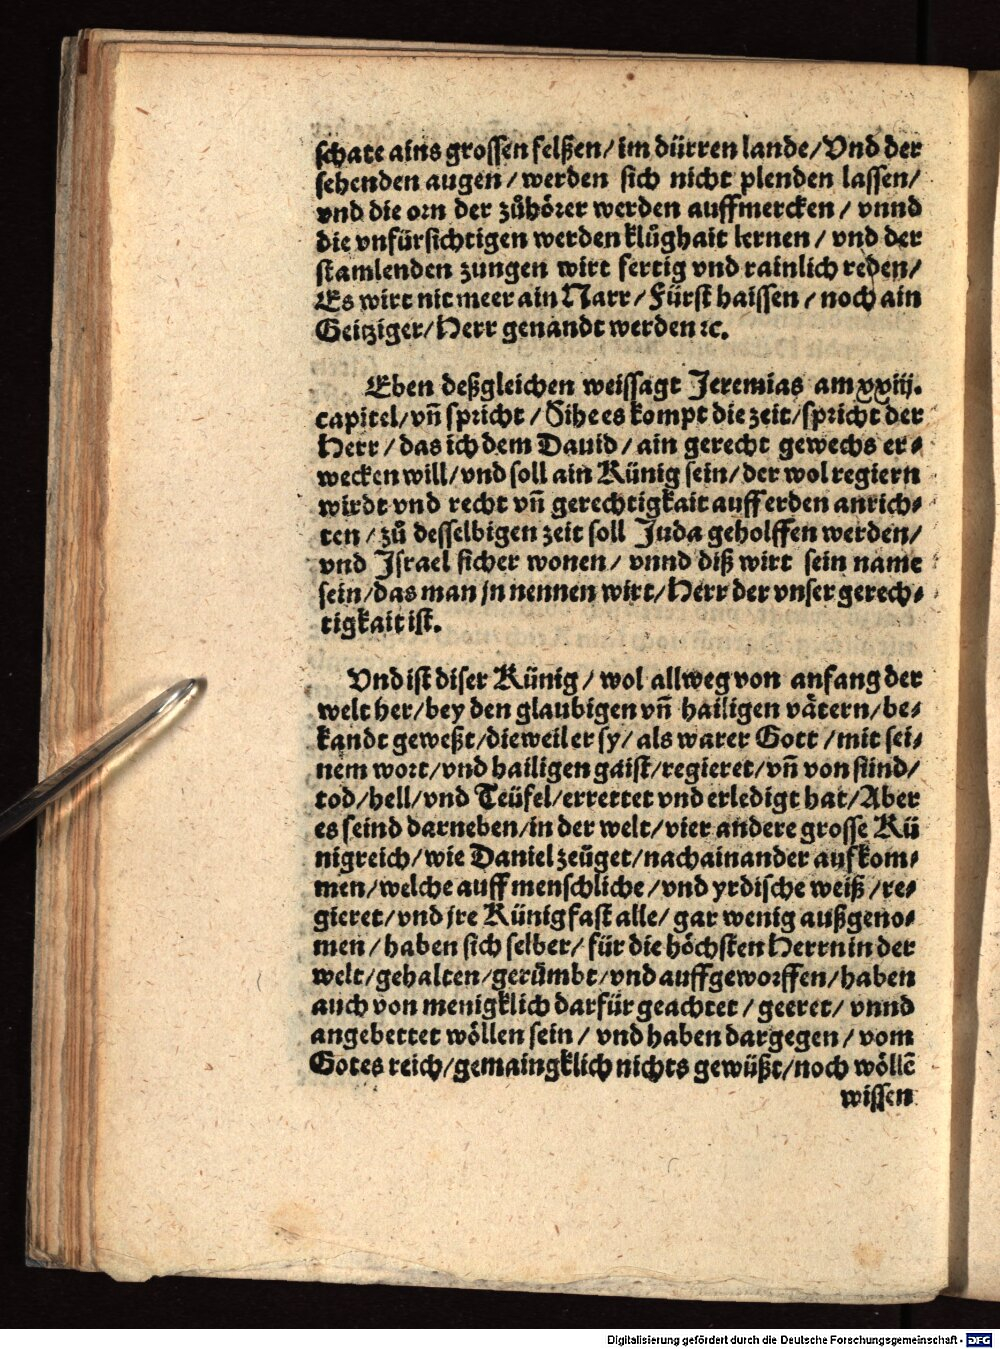 schate ains grossen felßen/ im dürren lande/ Vnd der
sehenden augen/ werden sich nicht plenden lassen/
vnd die orn der zůhörer werden auffmercken/ vnnd
die vnfürsichtigen werden klůghait lernen/ vnd der
stamlenden zungen wirt fertig vnd rainlich reden/
Es wirt nit meer ain Narr/ Fürst haissen/ noch ain
Geitziger/ Herr genandt werden ꝛc.
Eben deßgleichen weissagt Jeremias am xxiij.
capitel/ vñ spricht/ Sihe es kompt die zeit/ spricht der
Herr/ das ich dem Dauid/ ain gerecht gewechs er⸗
wecken will/ vnd soll ain Künig sein/ der wol regiern
wirdt vnd recht vñ gerechtigkait auff erden anrich⸗
ten/ zů desselbigen zeit soll Juda geholffen werden/
vnd Israel sicher wonen/ vnnd diß wirt sein name
sein/ das man jn nennen wirt/ Herr der vnser gerech⸗
tigkait ist.
Vnd ist diser Künig/ wol allweg von anfang der
welt her/ bey den glaubigen vñ hailigen vätern/ be⸗
kandt geweßt/ dieweil er sy/ als warer Gott/ mit sei⸗
nem wort/ vnd hailigen gaist/ regieret/ vñ von sünd/
tod/ hell/ vnd Teüfel/ errettet vnd erledigt hat/ Aber
es seind darneben/ in der welt/ vier andere grosse Kü
nigreich/ wie Daniel zeüget/ nach ainander auf kom⸗
men/ welche auff menschliche/ vnd yrdische weiß/ re⸗
gieret/ vnd jre Künig fast alle/ gar wenig außgeno⸗
men/ haben sich selber/ für die höchsten Herrn in der
welt/ gehalten/ gerümbt/ vnd auffgeworffen/ haben
auch von menigklich darfür geachtet/ geeret/ vnnd
angebettet wöllen sein/ vnd haben dargegen/ vom
Gotes reich/ gemaingklich nichts gewüßt/ noch wöllẽ
wissen
Digitalisierung gefördert durch die Deutsche Forschungsgemeinschaft - DFG